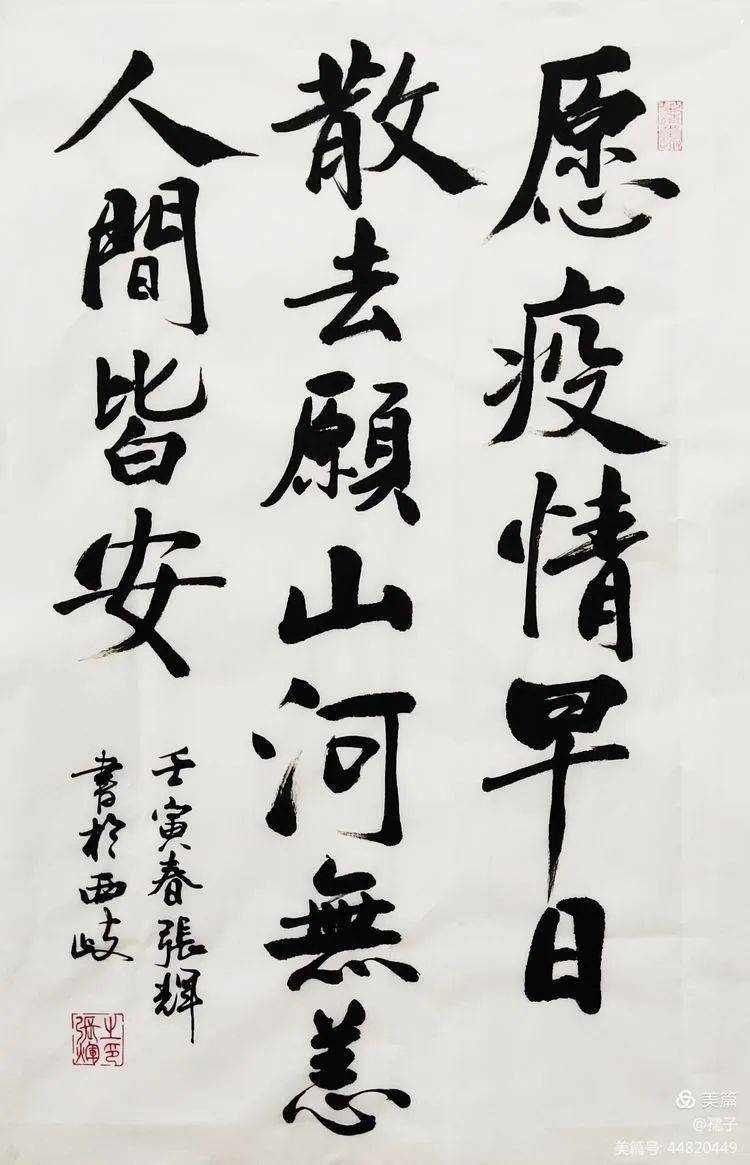 愿疫情早日
散去願山河無恙
人間皆安
壬寅春張輝
書於西岐
張輝之印
美篇
@孺子
美篇号: 44820449